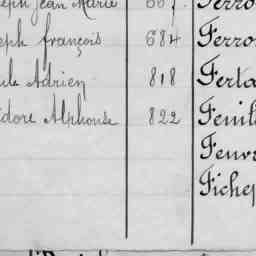 eph Jean Marie 667. Ferro
eph françois 684 Ferro
ule Adrien 818 Ferta
idore Alphonse 822 Feuil
Feuv
Fiche